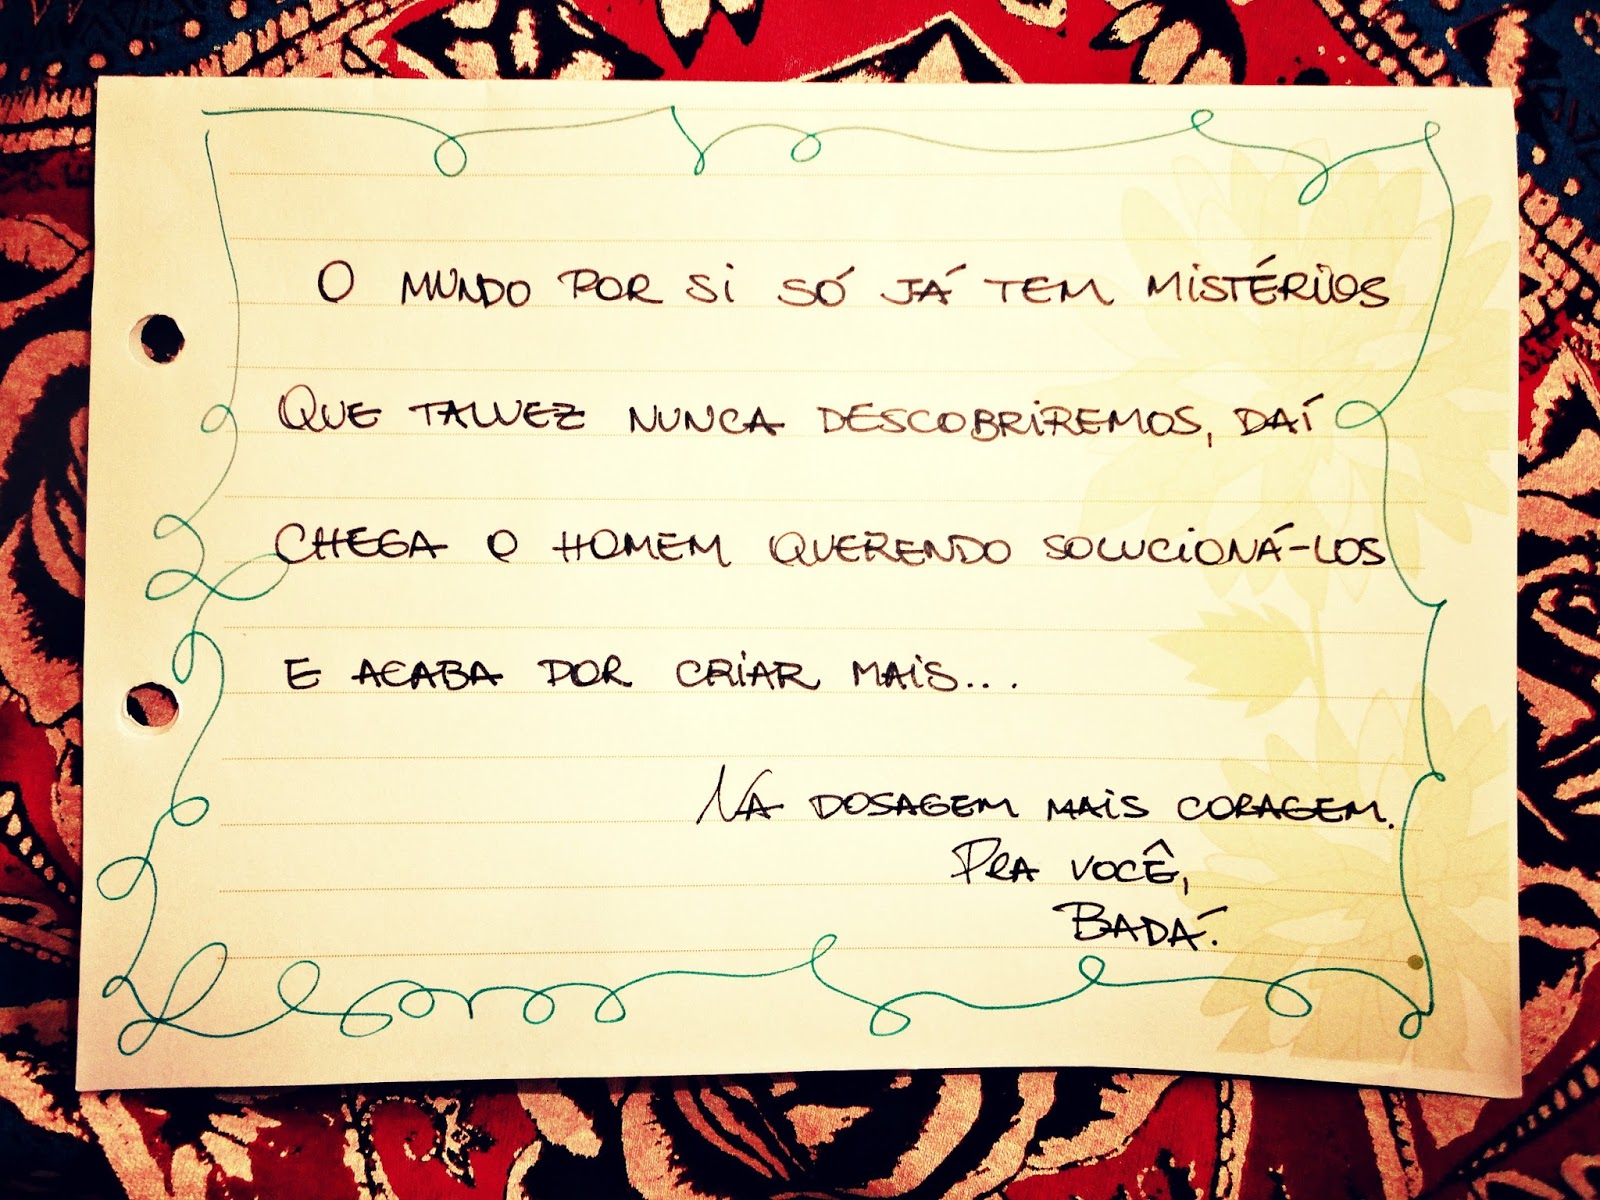 O MUNDO POR SI SÓ JÁ TEM MISTÉRIOS
QUE TALVEZ NUNCA DESCOBRIREMOS, DAÍ
CHEGA O HOMEM QUERENDO SOLUCIONÁ-LOS
E ACABA POR CRIAR MAIS...
NA DOSAGEM MAIS CORAGEM.
PRA VOCÊ,
BADÁ.